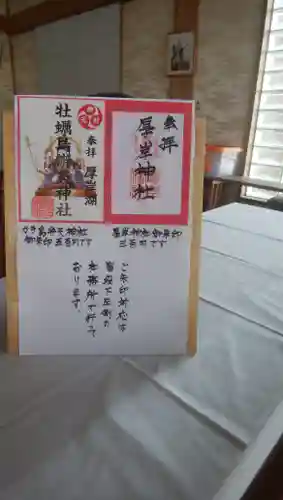 奉拝
厚岸神社
奉拝
厚岸湖
牡蠣島弁天神社
かき島弁天神社
御朱印五百円です
厚岸神社御朱印
三百円です
ご朱印対応は
階段下左側の
社務所で行って
おります。